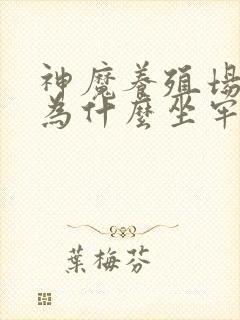 神魔養殖場
為什麼坐牢
葉梅芬